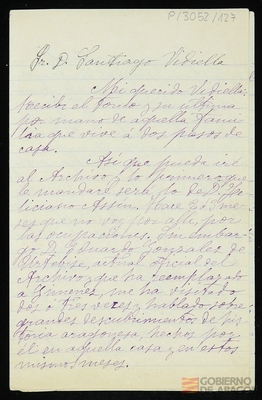 P/3052/127
Sr. D. Santiago Vidiella
Mi querido Vidiella:
recibí el tomo y su última
por mano de aquella fami-
lia que vive á dos pasos de
casa.
Así que pueda iré
al Archivo y lo primero que
le mandaré será lo de D.
Assin. Hace 2 ó 3 me-
ses que no voy por allí, por
las ocupaciones. Sin embar-
go D. Eduardo Gonzalez de
actual oficial del
Archivo, que ha reemplazado
á Gimenez, me ha visitado
dos ó tres veces, y hablado sobre
grandes descubrimientos de his-
toria aragonesa, hechos por
él en aquella casa, y en estos
mismos meses.
GOBIERNO
DE ARAGON